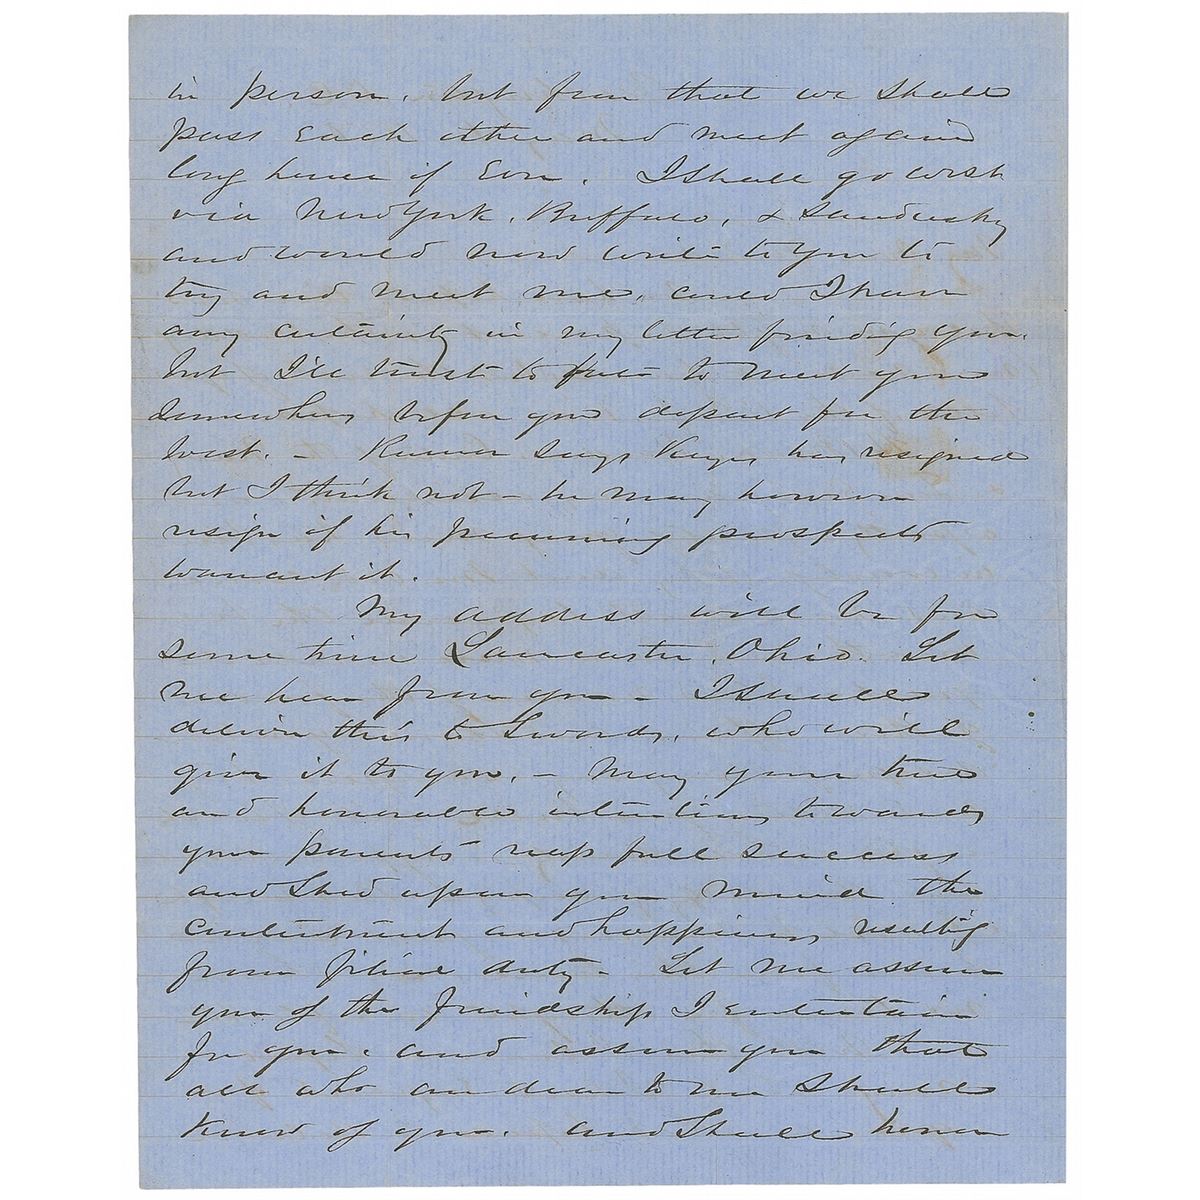 in person, but fear that we shall
pass each other and meet again
long hence if ever. I shall go west
via New York, Buffalo, & Sandusky
and would now write to you to
try and meet me, could I have
any certainty in my letter finding you.
but I'll trust to fate to meet you
somewhere before you depart for the
West. – says has resigned
but I think not – he may however
resign if his pecuniary prospects
warrant it.
My address will be for
some time Lancaster, Ohio. Let
me hear from you – I shall
deliver this to Swords, who will
give it to you. – May your true
and honorable intentions towards
your parents reap full success
and shed upon your mind the
contentment and happiness resulting
from filial duty – Let me assure
you of the friendship I entertain
for you, and assure you that
all who are dear to me shall
know of you, and shall honor